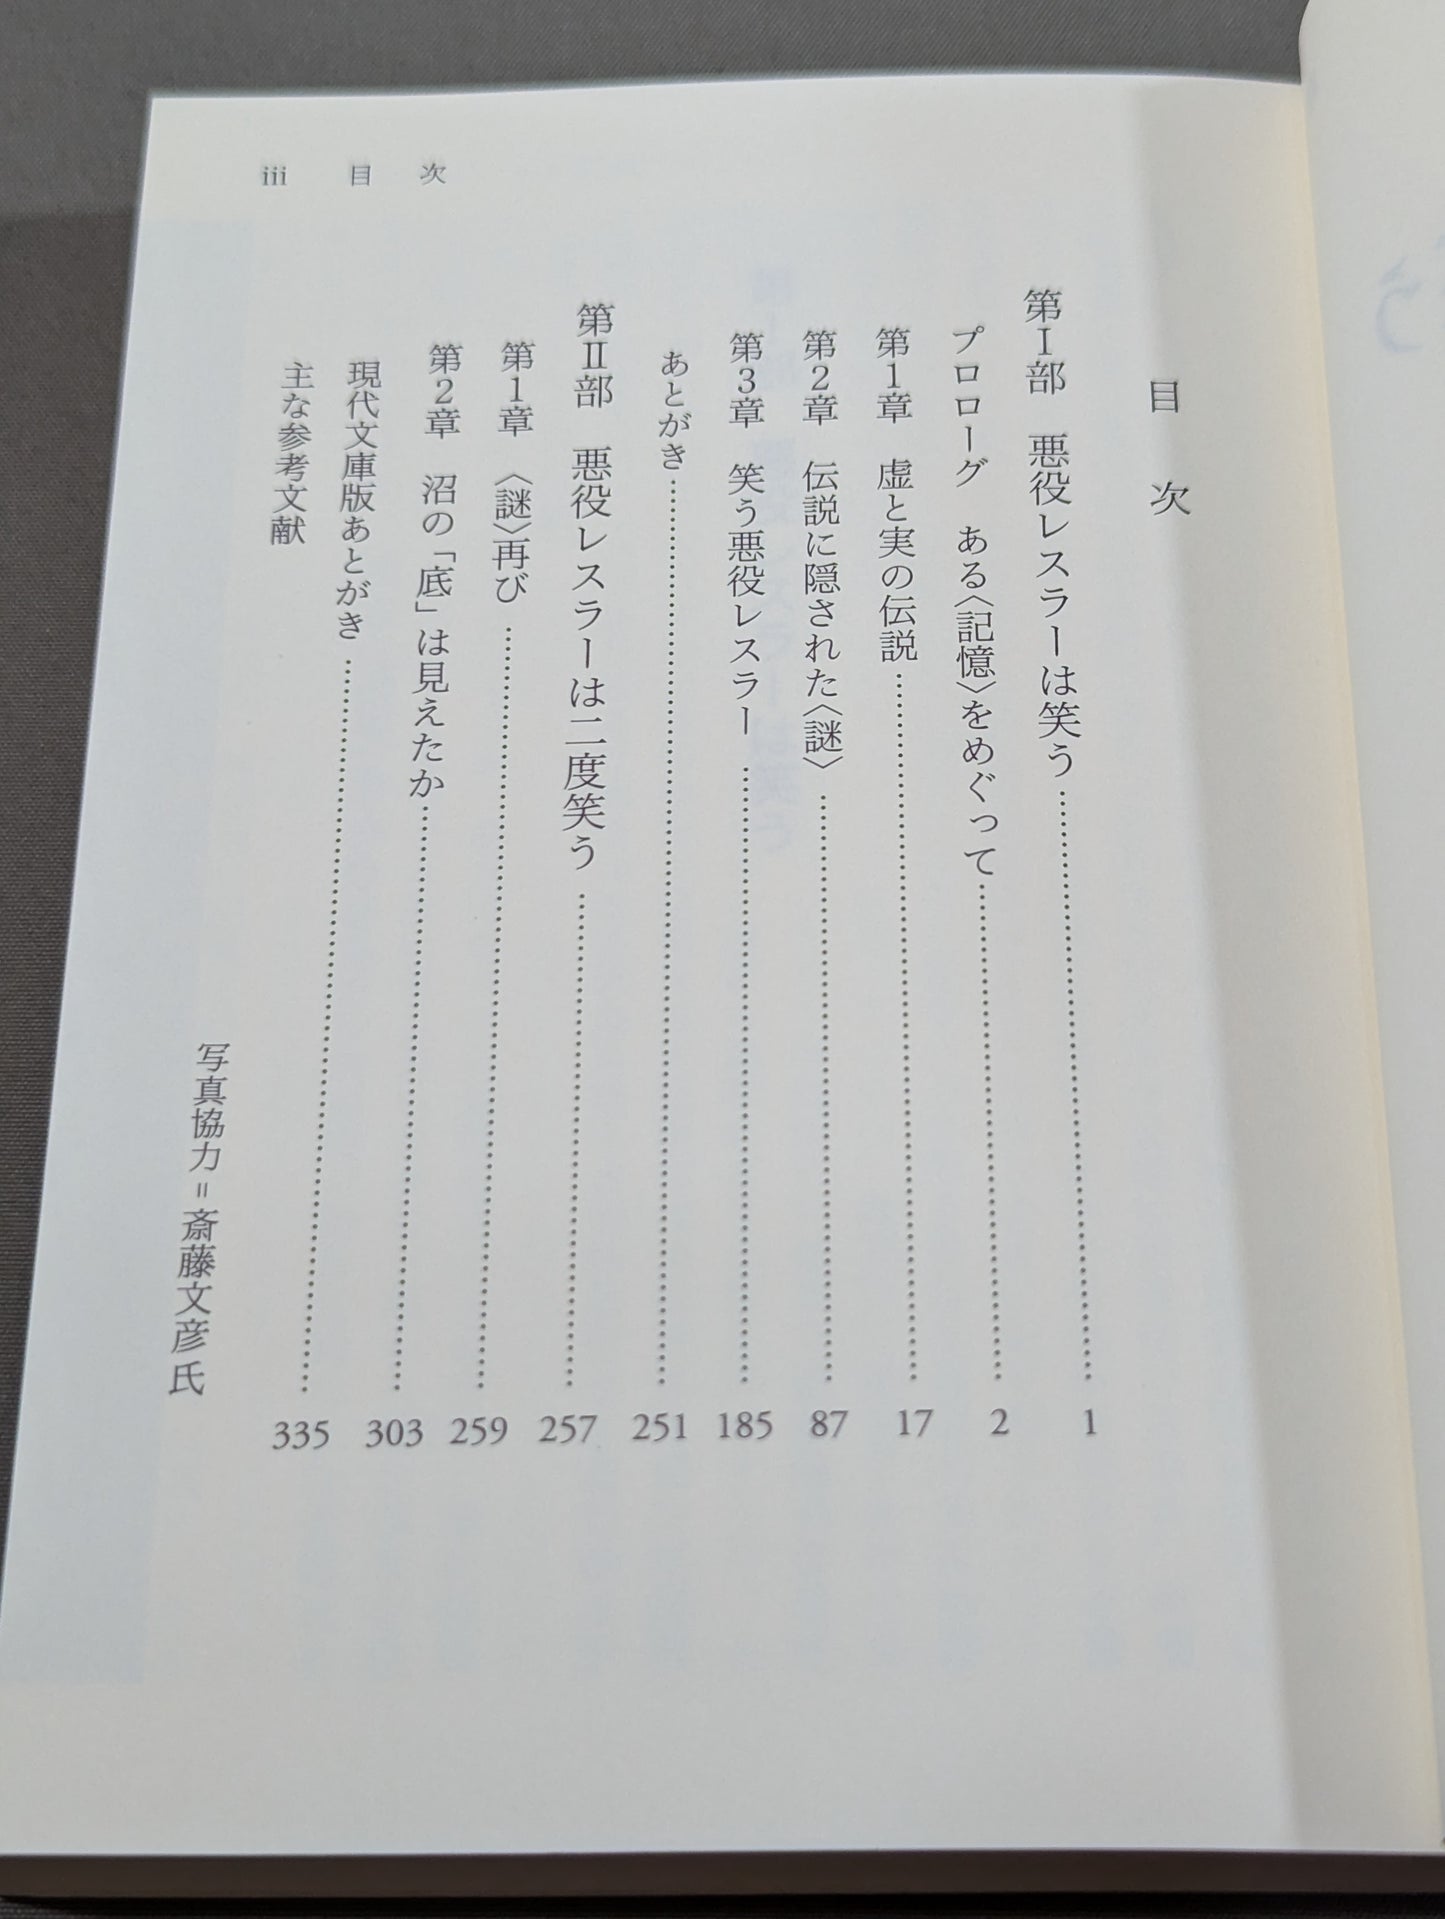 iii 目 次
目 次
第Ⅰ部 悪役レスラーは笑う………1
プロローグ ある〈記憶〉をめぐって………2
第1章 虚と実の伝説………17
第2章 伝説に隠された〈謎〉………87
第3章 笑う悪役レスラー………185
あとがき………251
第Ⅱ部 悪役レスラーは二度笑う………257
第1章 〈謎〉再び………259
第2章 沼の「底」は見えたか………303
現代文庫版あとがき………335
主な参考文献
写真協力=斎藤文彦氏